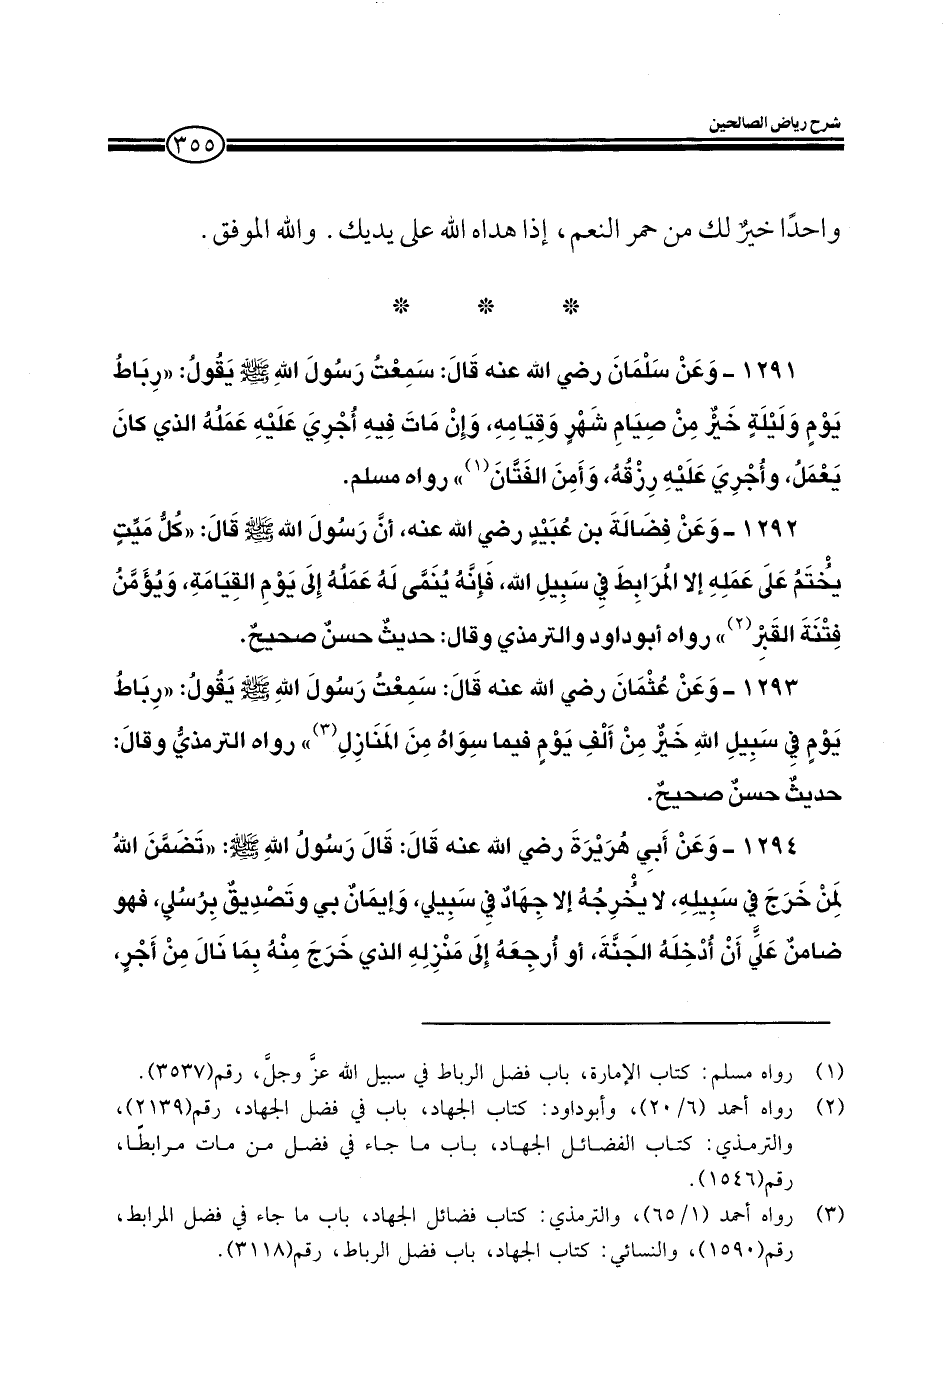 شرح رياض الصالحين
٣٥٥
واحدًا خيرٌ لك من حمر النعم، إذا هداه الله على يديك. والله الموفق.
* * *
١٢٩١ ـ وَعَنْ سَلْمَانَ رضي الله عنه قَالَ: سَمِعْتُ رَسُولَ اللهِ ﷺ يَقُولُ: «رِبَاطُ
يَوْمٍ وَلَيْلَةٍ خَيْرٌ مِنْ صِيَامِ شَهْرٍ وَقِيَامِهِ، وَإِنْ مَاتَ فِيهِ أُجْرِيَ عَلَيْهِ عَمَلُهُ الذي كانَ
يَعْمَلُ، وأُجْرِيَ عَلَيْهِ رِزْقُهُ، وَأَمِنَ الفَتَّانَ(١)» رواه مسلم.
١٢٩٢ ـ وَعَنْ فَضَالَةَ بن عُبَيْدٍ رضي الله عنه، أنَّ رَسُولَ الله ﷺ قَالَ: «كُلُّ مَيِّتٍ
يُخْتَمُ عَلَى عَمَلِهِ إلا المُرَابِطَ فِي سَبِيلِ الله، فَإِنَّهُ يُنَمَّى لَهُ عَمَلُهُ إلَى يَوْمِ القِيَامَةِ، وَيُؤَمَّنُ
فِتْنَةَ القَبْرِ(٢)» رواه أبوداود والترمذي وقال: حديثٌ حسنٌ صحيحٌ.
١٢٩٣ ـ وَعَنْ عُثْمَانَ رضي الله عنه قَالَ: سَمِعْتُ رَسُولَ اللهِ ﷺ يَقُولُ: «رِبَاطُ
يَوْمٍ فِي سَبِيلِ اللهِ خَيْرٌ مِنْ أَلْفِ يَوْمٍ فيما سِوَاهُ مِنَ المَنَازِلِ(٣)» رواه الترمذيُّ وقالَ:
حديثٌ حسنٌ صحيحٌ.
١٢٩٤ ـ وَعَنْ أبي هُرَيْرَةَ رضي الله عنه قَالَ: قَالَ رَسُولُ اللهِ ﷺ: «تَضَمَّنَ اللهُ
لِمَنْ خَرَجَ فِي سَبِيلِهِ، لا يُخْرِجُهُ إلا جِهَادٌ فِي سَبِيلِي، وَإيمَانٌ بي وتَصْدِيقٌ بِرُسُلِي، فهو
ضامنٌ عَلَيَّ أَنْ أُدْخِلَهُ الجَنَّةَ، أو أُرجِعَهُ إلَى مَنْزِلِهِ الذي خَرَجَ مِنْهُ بِمَا نَالَ مِنْ أَجْرٍ،
(١) رواه مسلم: كتاب الإمارة، باب فضل الرباط في سبيل الله عزَّ وجلَّ، رقم(٣٥٣٧).
(٢) رواه أحمد (٦/ ٢٠)، وأبوداود: كتاب الجهاد، باب في فضل الجهاد، رقم(٢١٣٩)،
والترمذي: كتاب الفضائل الجهاد، باب ما جاء في فضل من مات مرابطًا،
رقم(١٥٤٦).
(٣) رواه أحمد (١/ ٦٥)، والترمذي: كتاب فضائل الجهاد، باب ما جاء في فضل المرابط،
رقم(١٥٩٠)، والنسائي: كتاب الجهاد، باب فضل الرباط، رقم(٣١١٨).